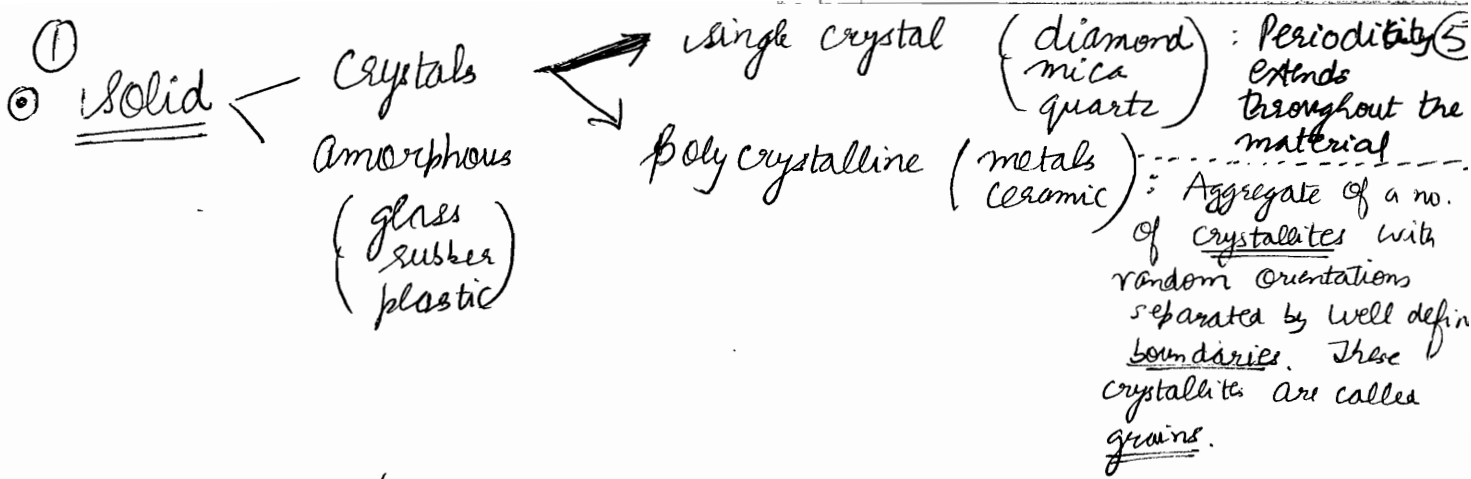 ①
Solid
Crystals
amorphous
(glass
rubber
plastic)
single crystal (diamond
mica
quartz)
: Periodicity ⑤
extends
throughout the
material
polycrystalline (metals
ceramic)
: Aggregate of a no.
of crystallites with
random orientations
separated by well defin
boundaries. These
crystallites are called
grains.